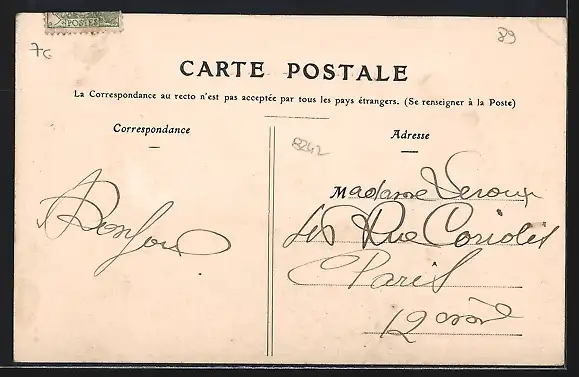 POSTES
7G
89
CARTE POSTALE
La Correspondance au recto n'est pas acceptée par tous les pays étrangers. (Se renseigner à la Poste)
Correspondance
8242
Adresse
Bonjour
Madame Leroux
46 Rue Coriolis
Paris
12